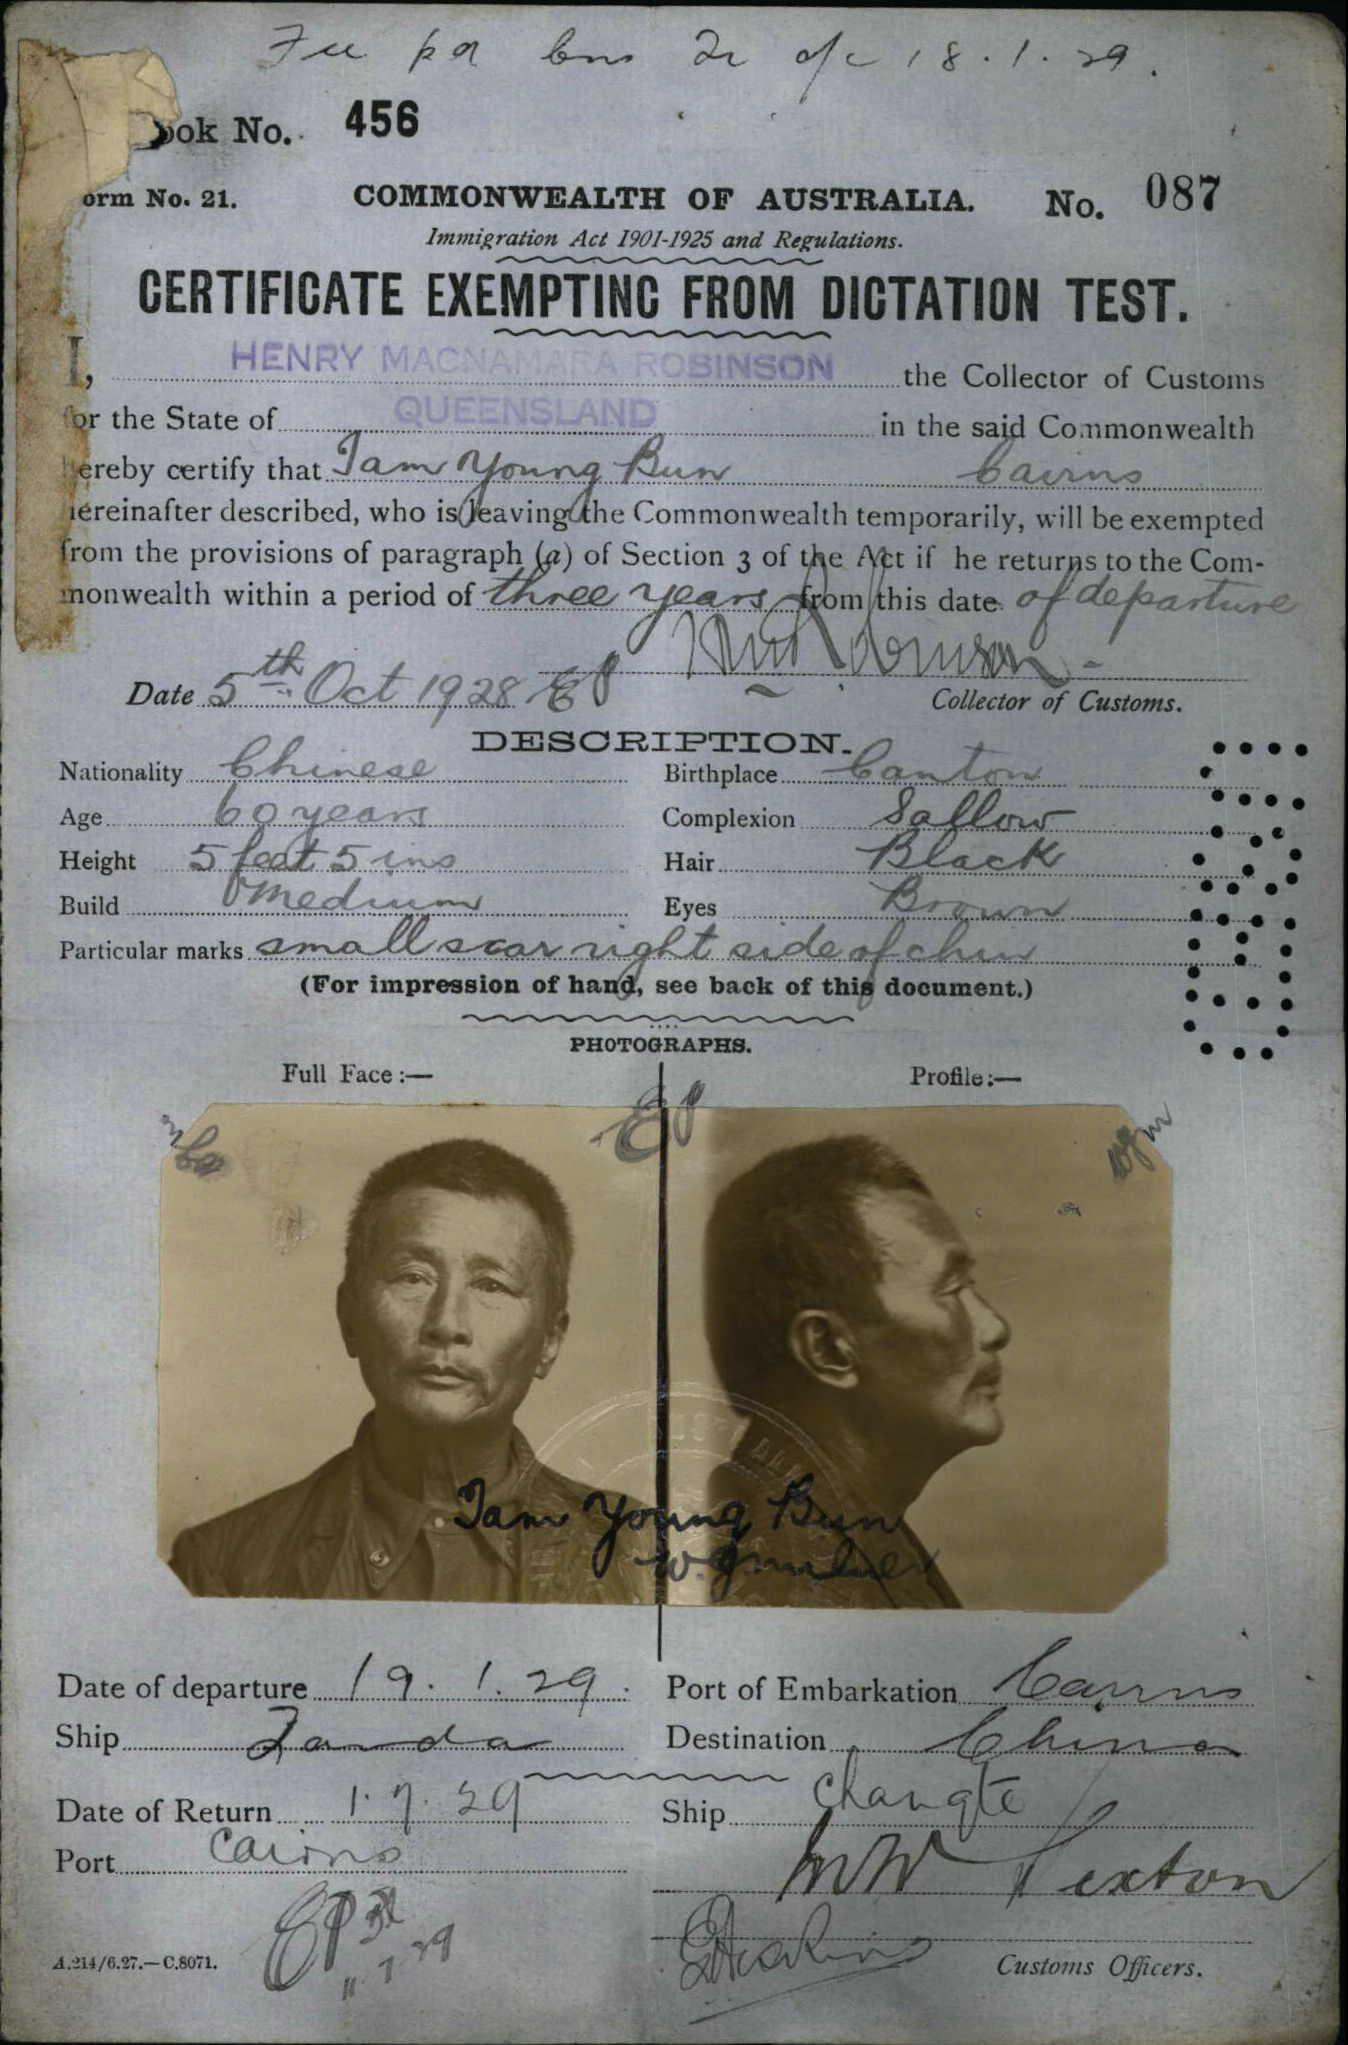 Fee pd Cns 2/- d/c 18.1.29.
ook No. 456
orm No. 21. COMMONWEALTH OF AUSTRALIA. No. 087
Immigration Act 1901-1925 and Regulations.
CERTIFICATE EXEMPTING FROM DICTATION TEST.
I, HENRY MACNAMARA ROBINSON the Collector of Customs
for the State of QUEENSLAND in the said Commonwealth
hereby certify that Tam Young Bun Cairns
hereinafter described, who is leaving the Commonwealth temporarily, will be exempted
from the provisions of paragraph (a) of Section 3 of the Act if he returns to the Com-
monwealth within a period of three years from this date of departure
Date 5th Oct 1928 EP
Collector of Customs.
DESCRIPTION.
Nationality Chinese Birthplace Canton
Age 60 years Complexion Sallow
Height 5 feet 5 ins Hair Black
Build medium Eyes Brown
Particular marks small scar right side of chin
(For impression of hand, see back of this document.)
PHOTOGRAPHS.
Full Face:— Profile:—
EP
wgm
Tam Young Bun
Date of departure 19.1.29. Port of Embarkation Cairns
Ship Tanda Destination China
Date of Return 1.7.29 Ship Changte
Port Cairns
EP
11.7.29
A.214/6.27.—C.8071. Customs Officers.